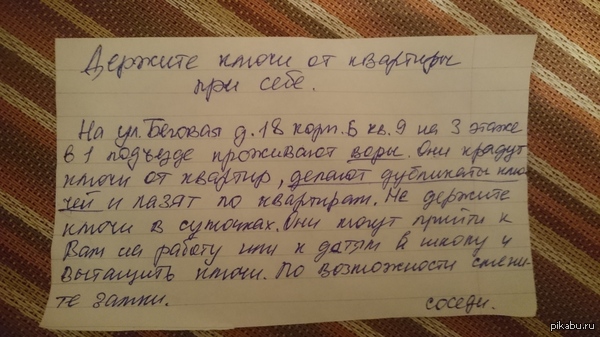 Держите ключи от квартиры
при себе.
На ул. Беговая д. 18 корп. Б кв. 9 на 3 этаже
в 1 подъезде проживают воры. Они крадут
ключи от квартир, делают дубликаты клю-
чей и лазят по квартирам. Не держите
ключи в сумочках. Они могут прийти к
Вам на работу или к детям в школу и
вытащить ключи. По возможности смени-
те замки.
соседи.
pikabu.ru